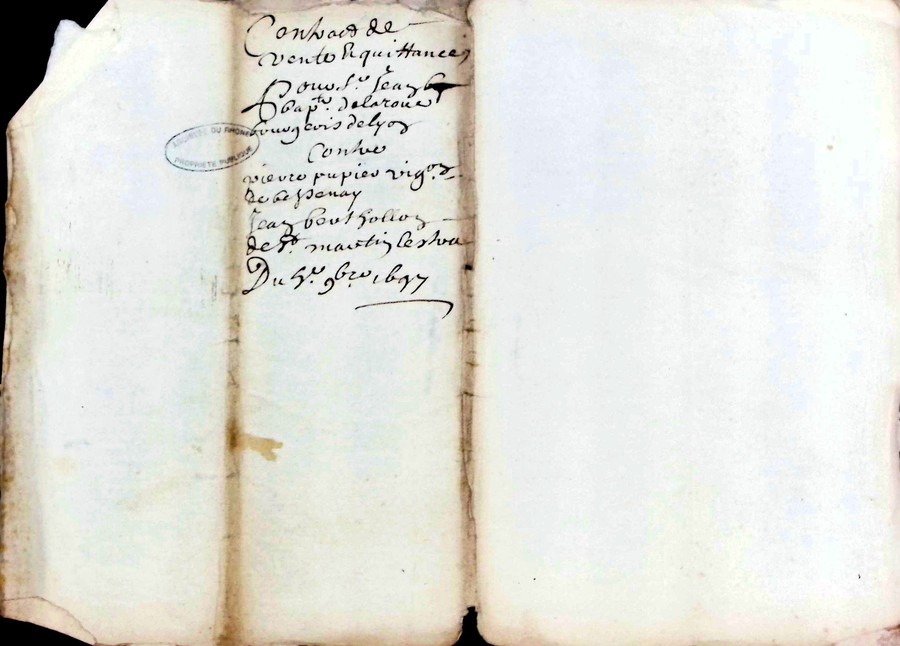 Contract de
vente & quittance
Pour Sr. Jean
bapte. delaroue
bourgeois de lyon
Contre
pierre pupier vigon. d
de bessenay
Jean berthollon
de St. martin lestra
Du 9bre 1697
ARCHIVES DU RHÔNE
PROPRIÉTÉ PUBLIQUE